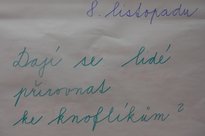 8. listopadu
Dají se lidé
přirovnat
ke knoflíkům?